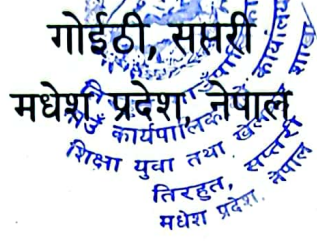 गोईठी, सप्तरी
मधेश प्रदेश, नेपाल
गाउँ कार्यपालिका कार्यालय
शिक्षा युवा तथा शाखा
तिरहुत, सप्तरी
मधेश प्रदेश, नेपाल